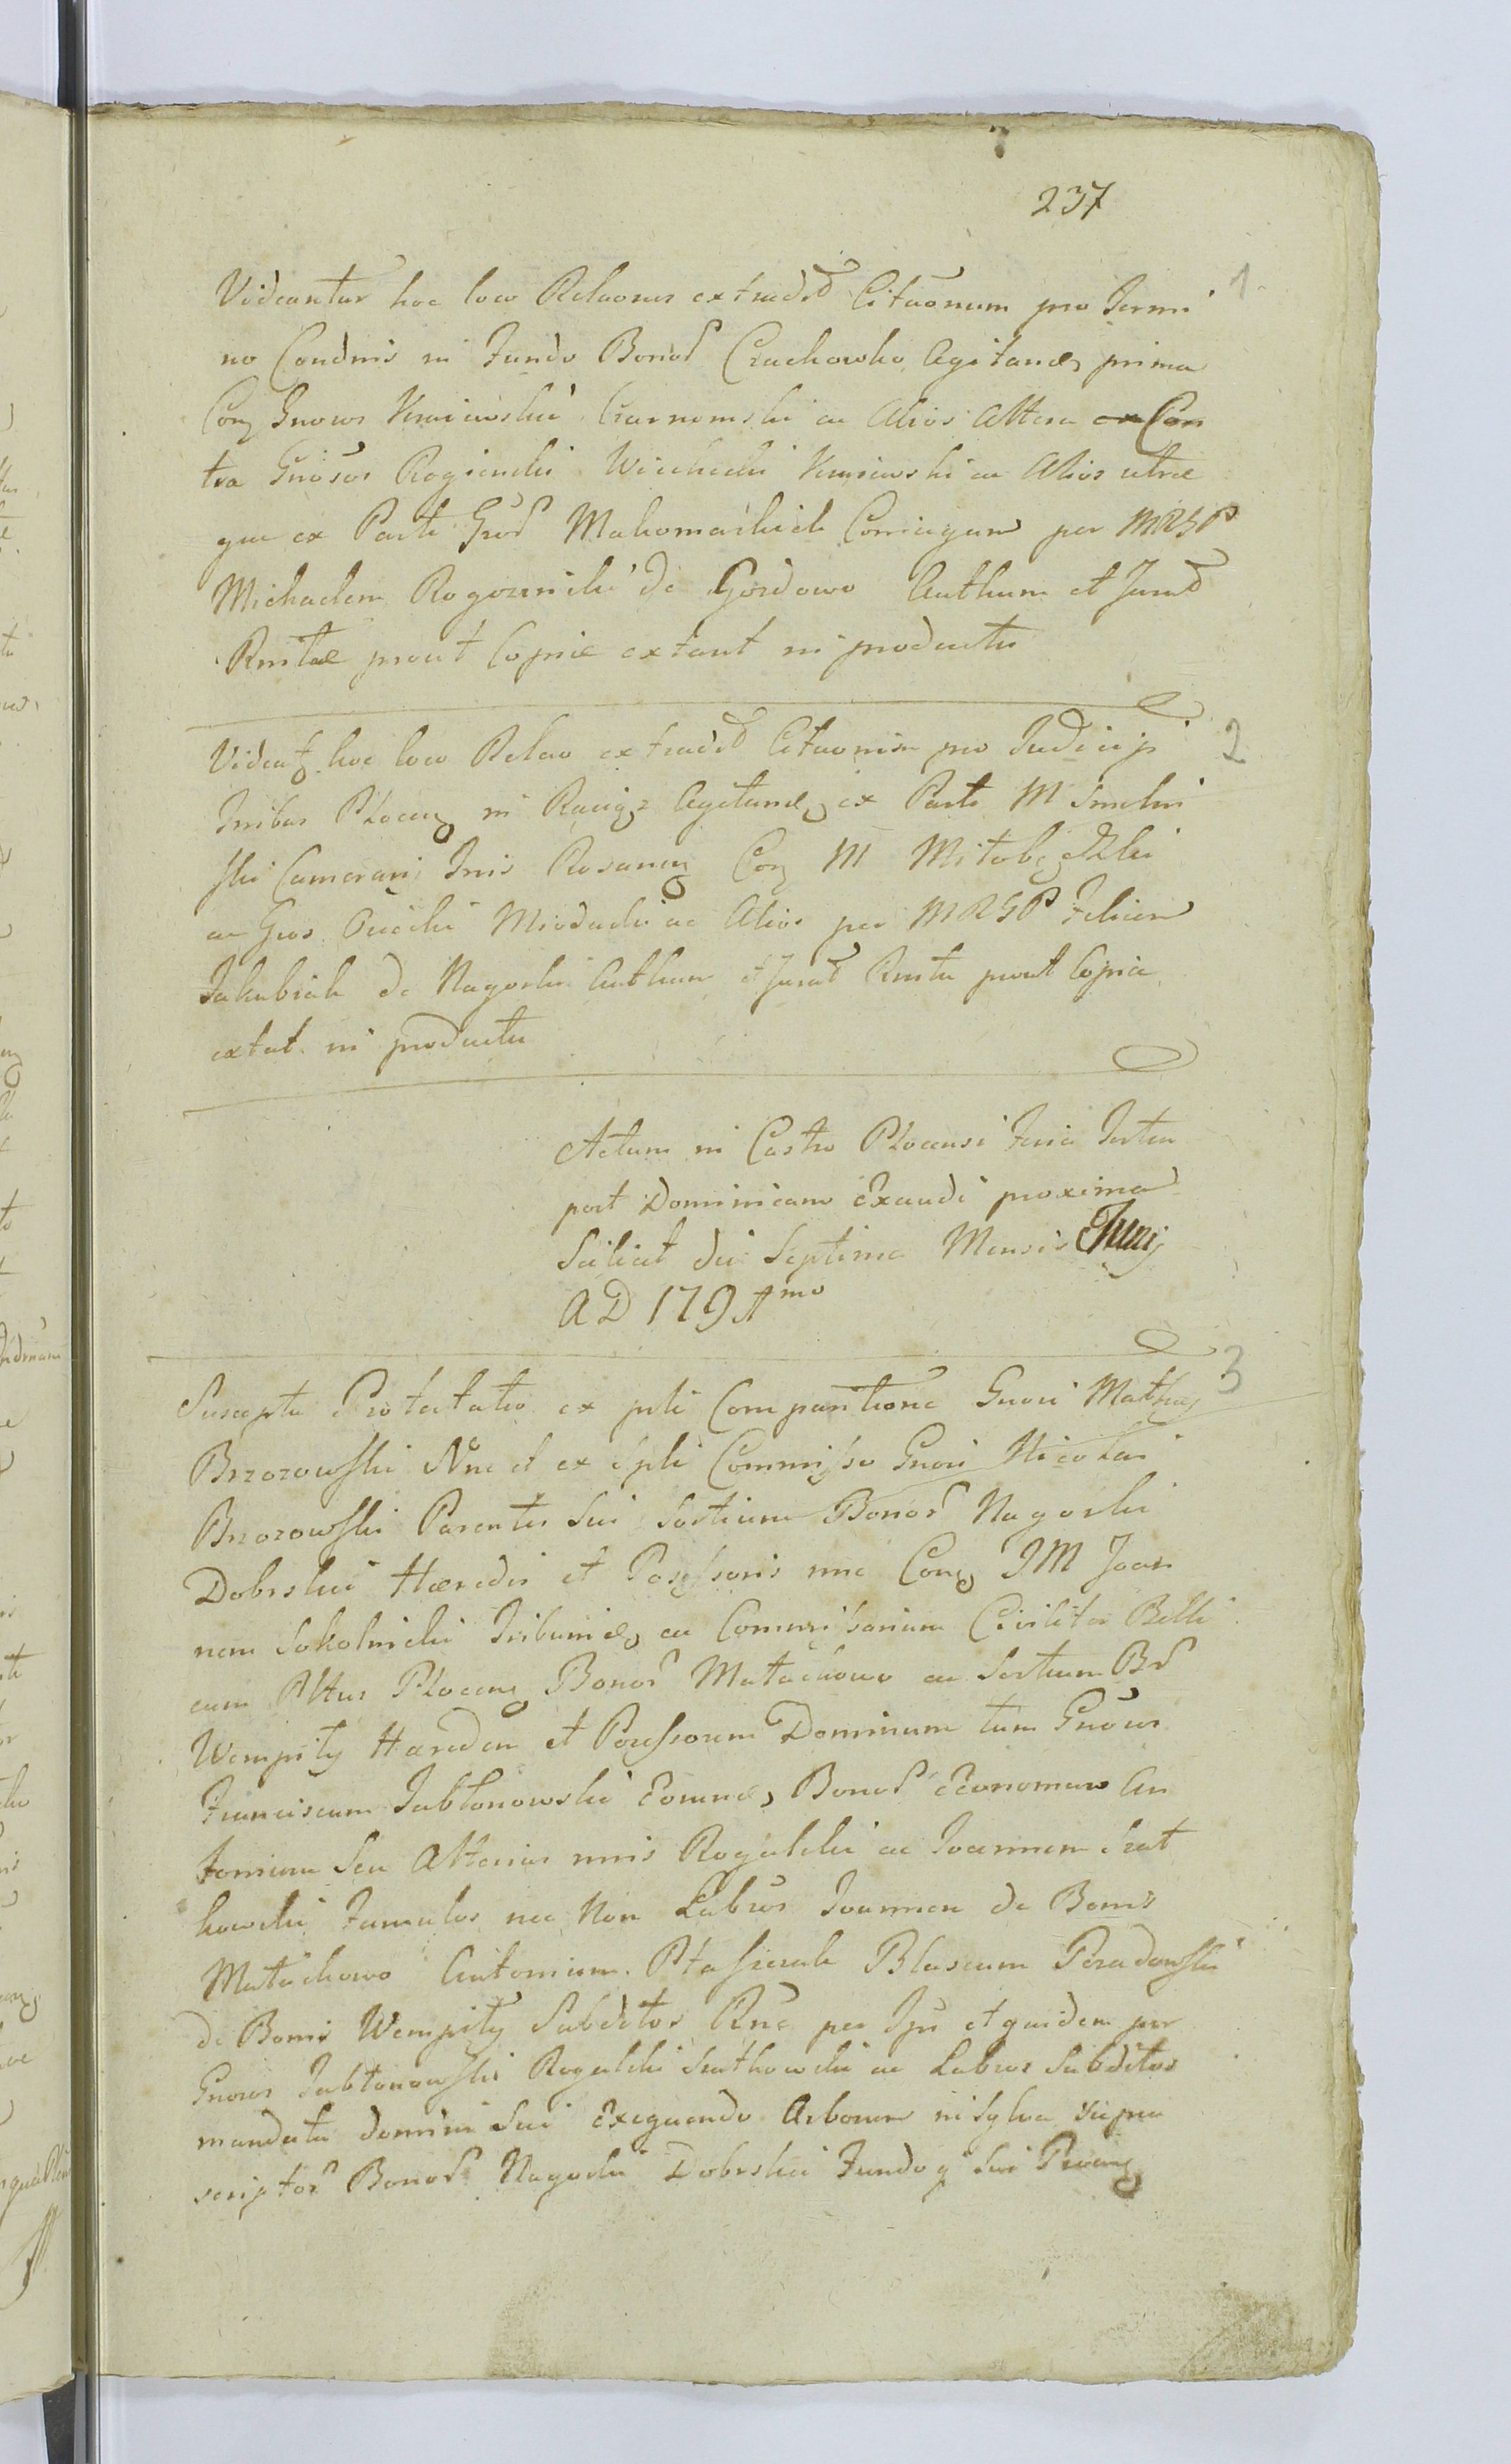 237
Videantur hoc loco Relaones extradīd Cituōnum pro Termi
no Condnis in Fundo Bonor Czachowko Agitand prima
Con Gnosos Czarnomski ac Alios Altera ex Con
tra Gnosos Rogienski Wichecki ac Alios utrae
que ex Parte Gnor Makomaskich Coniugum per MRGP
Michaelem Rogozinski de Gozdowo Authum et Jurad
Rnitae prout Copiae extant in productu
1
Videat hoc loco Relao extradīd Cituonism pro Judicijs
Tribus Plocen in Raciąz Agitand ex Parte M Smolin
ski Camerarij Tris Rosanen Con M
ac Gnos Mioduski ac Alios per MRGP Felicem
Jakubiak de Nagorki Authum et Jurad Rnita prout Copia
extat in productu
2
Actum in Castro Plocensi Feria Tertia
post Dominicam Exaudi proxima
Scilicet die Septima Mensis Junij
A D 1791mo
Suscepta Protestatio ex psli Comparitione Gnosi Mathiae
Brzozowski Nne et ex spli Commisso Gnosi Nicolai
Brzozowski Parentis Sui Sortium Bonor Nagorki
Dobrskie Haeredis et Possessoris nne Con JM Joan
nem Sokolnicki Tribunid ac Commissarium Civilitar Belli
cum Pttus Plocen Bonor Malachowo ac Sortium Br
Wempiły Haeredem et Possessorem Dominum tum Gnosus
Franciscum Jabłonowski Eorund Bonor Economum An
tonium Seu Alterius nnis Rogalski ac Joannem Szat
kowski Famulos nec Non Labros Joannem de Bonis
Malachowo Antonium Ptaszczak Blaseum Poradowski
de Bonis Wempiły Subditos Rne per Ipsi et quidem per
Gnosos Jabłonowski Rogalski Szatkowski ac Labros Subditos
mandata domini Sui Exequendo Arborem in Sylva supra
scriptor Bonor Nagorki Dobrskie Fundoq sui
3